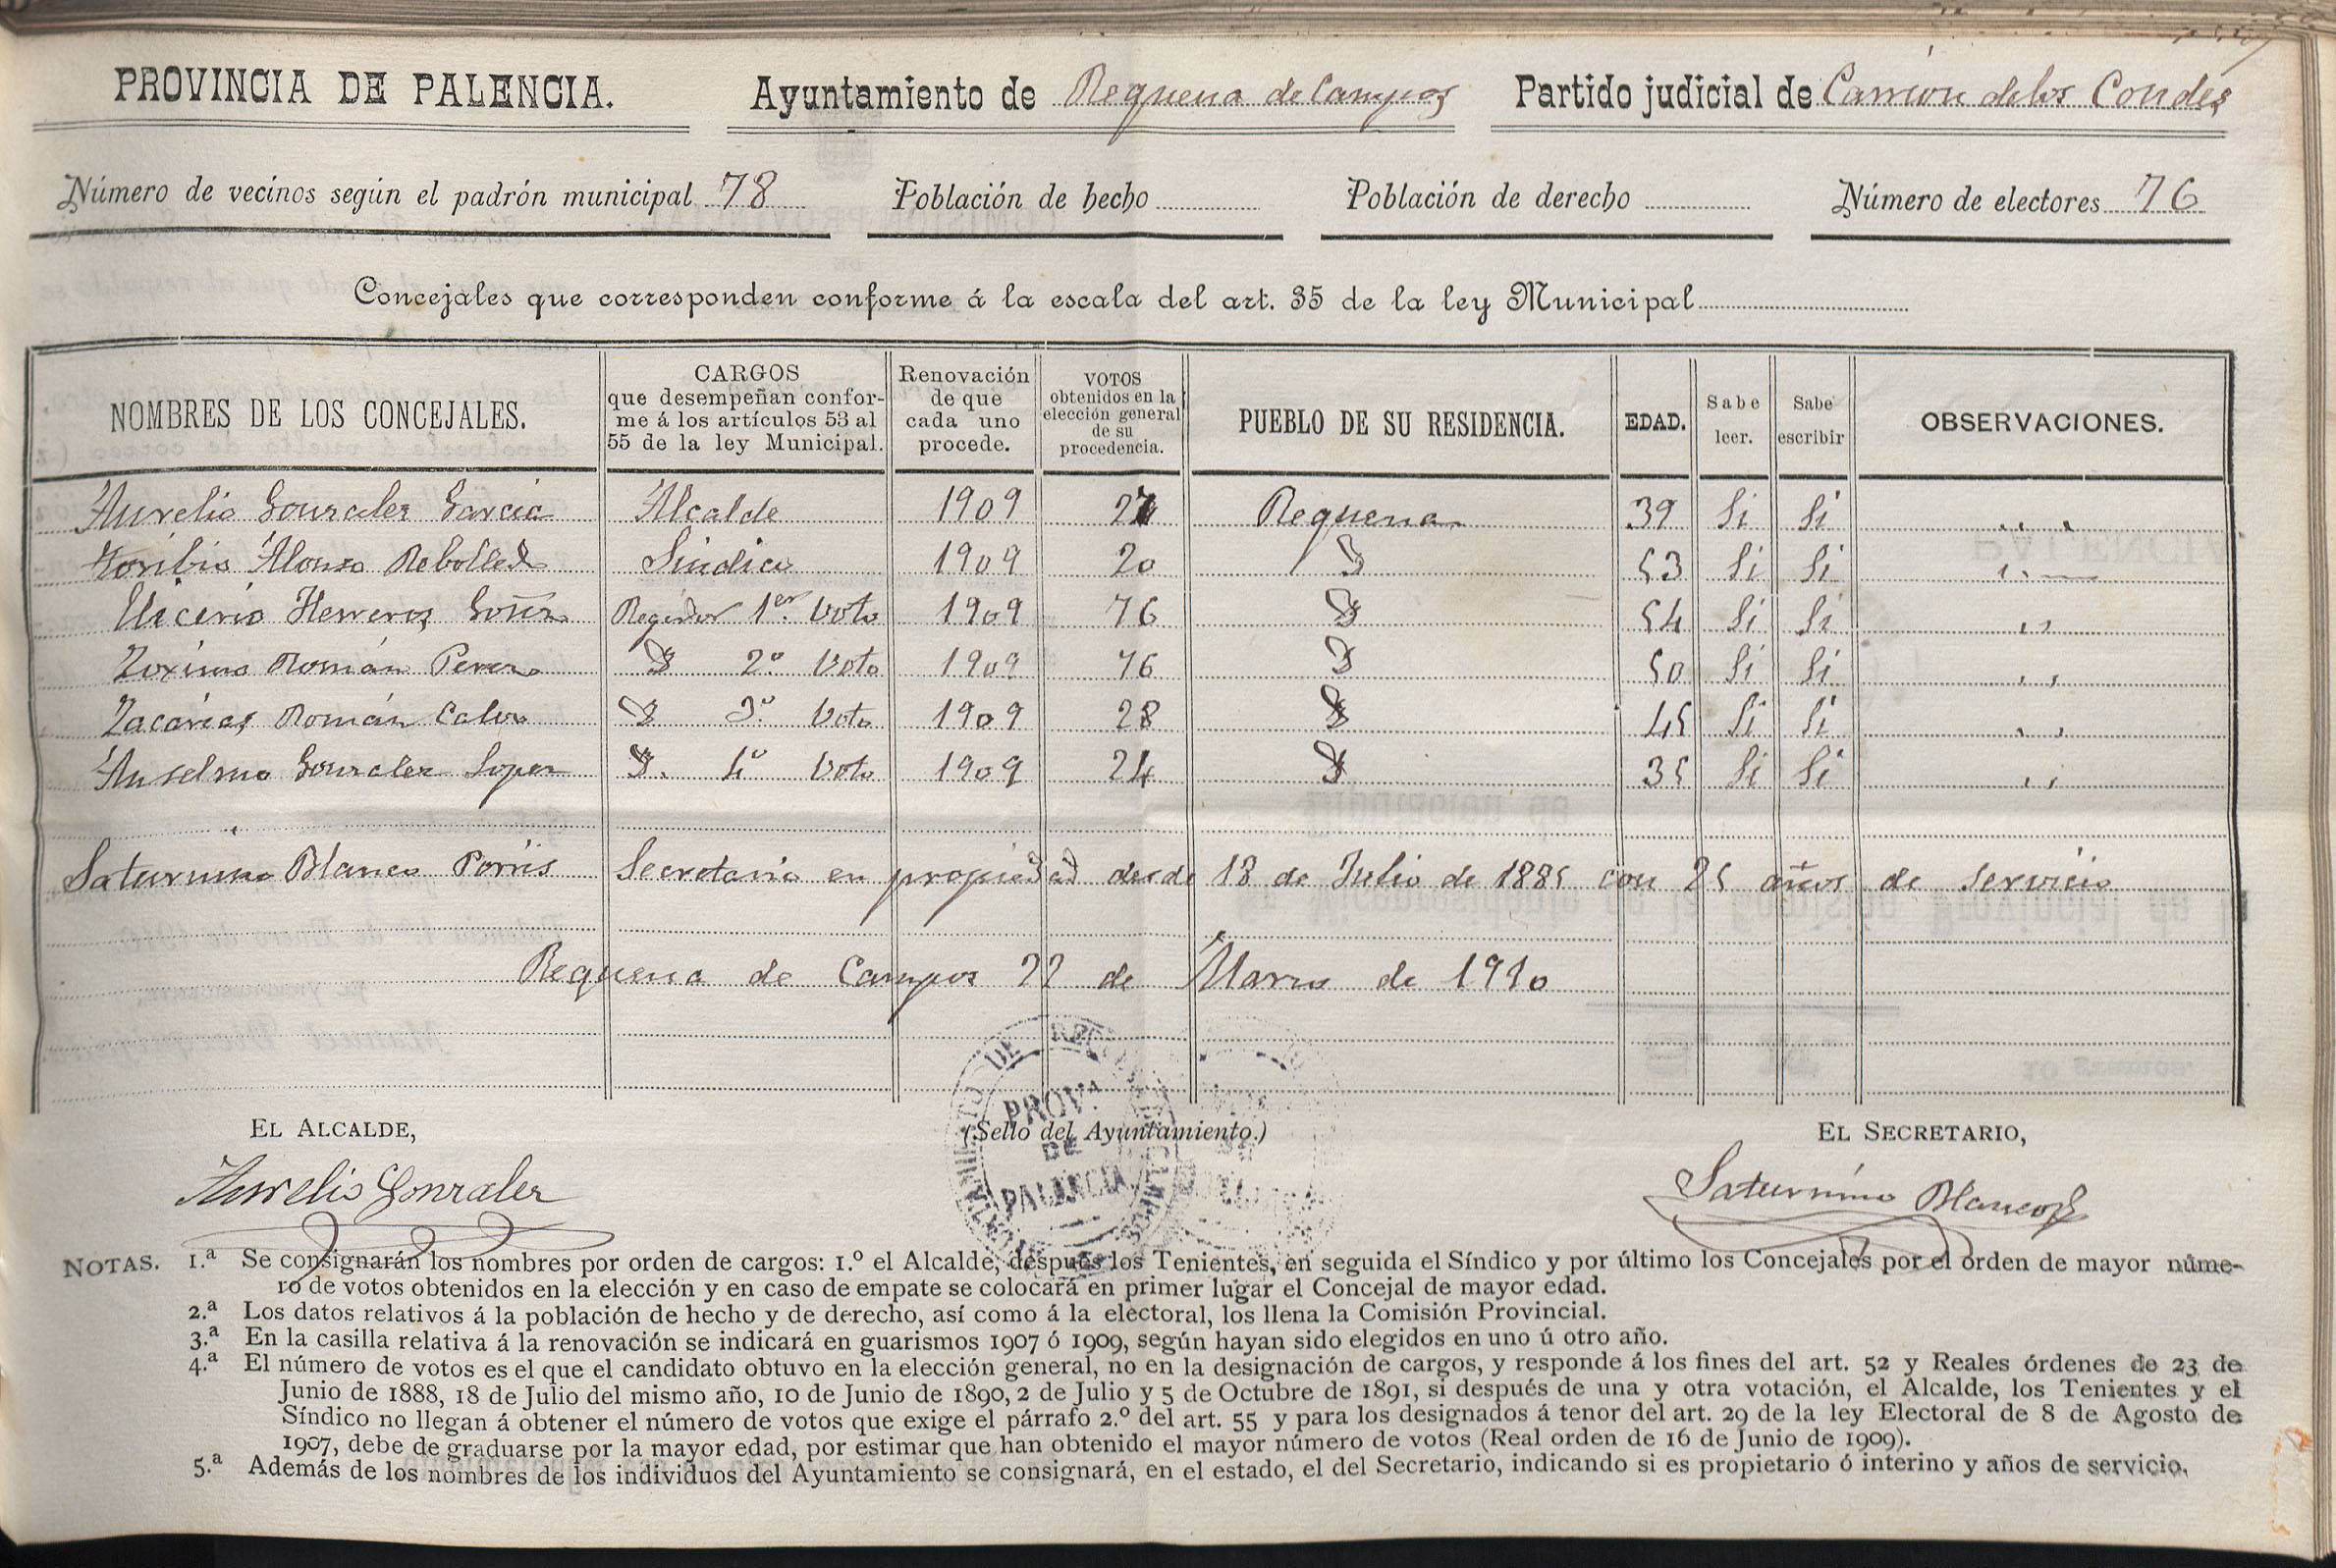 PROVINCIA DE PALENCIA. Ayuntamiento de Requena de Campos Partido judicial de Carrión de los Condes
Número de vecinos según el padrón municipal 78 Población de hecho Población de derecho Número de electores 76
Concejales que corresponden conforme á la escala del art. 35 de la ley Municipal
NOMBRES DE LOS CONCEJALES. CARGOS que desempeñan conforme á los artículos 53 al 55 de la ley Municipal. Renovación de que cada uno procede. VOTOS obtenidos en la elección general de su procedencia. PUEBLO DE SU RESIDENCIA. EDAD. Sabe leer. Sabe escribir OBSERVACIONES.
Aurelio Gonzalez Garcia Alcalde 1909 Requena 39 Si Si
Toribio Alonso Rebolledo Sindico 1909 20 53 Si Si
Herreros Regidor 1er Voto 1909 54 Si Si
Román Perez 2º Voto 1909 50 Si Si
Zacarias Román Calvo 3º Voto 1909 28 45 Si Si
Anselmo Gonzalez Lopez 4º Voto 1909 24 35 Si Si
Saturnino Blanco Secretario en propiedad desde 18 de Julio de 1885 con 25 años de servicio
Requena de Campos 22 de Marzo de 1910
EL ALCALDE, (Sello del Ayuntamiento.) EL SECRETARIO,
PROV.ª DE PALENCIA
Aurelio Gonzalez Saturnino Blanco
NOTAS. 1.ª Se consignarán los nombres por orden de cargos: 1.º el Alcalde, después los Tenientes, en seguida el Síndico y por último los Concejales por el orden de mayor núme-
ro de votos obtenidos en la elección y en caso de empate se colocará en primer lugar el Concejal de mayor edad.
2.ª Los datos relativos á la población de hecho y de derecho, así como á la electoral, los llena la Comisión Provincial.
3.ª En la casilla relativa á la renovación se indicará en guarismos 1907 ó 1909, según hayan sido elegidos en uno ú otro año.
4.ª El número de votos es el que el candidato obtuvo en la elección general, no en la designación de cargos, y responde á los fines del art. 52 y Reales órdenes de 23 de
Junio de 1888, 18 de Julio del mismo año, 10 de Junio de 1890, 2 de Julio y 5 de Octubre de 1891, si después de una y otra votación, el Alcalde, los Tenientes y el
Síndico no llegan á obtener el número de votos que exige el párrafo 2.º del art. 55 y para los designados á tenor del art. 29 de la ley Electoral de 8 de Agosto de
1907, debe de graduarse por la mayor edad, por estimar que han obtenido el mayor número de votos (Real orden de 16 de Junio de 1909).
5.ª Además de los nombres de los individuos del Ayuntamiento se consignará, en el estado, el del Secretario, indicando si es propietario ó interino y años de servicio.